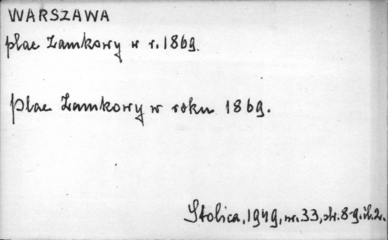 WARSZAWA
plac Zamkowy w r. 1869.
plac Zamkowy w roku 1869.
Stolica, 1949, nr. 33, str. 8-9, il. 2.